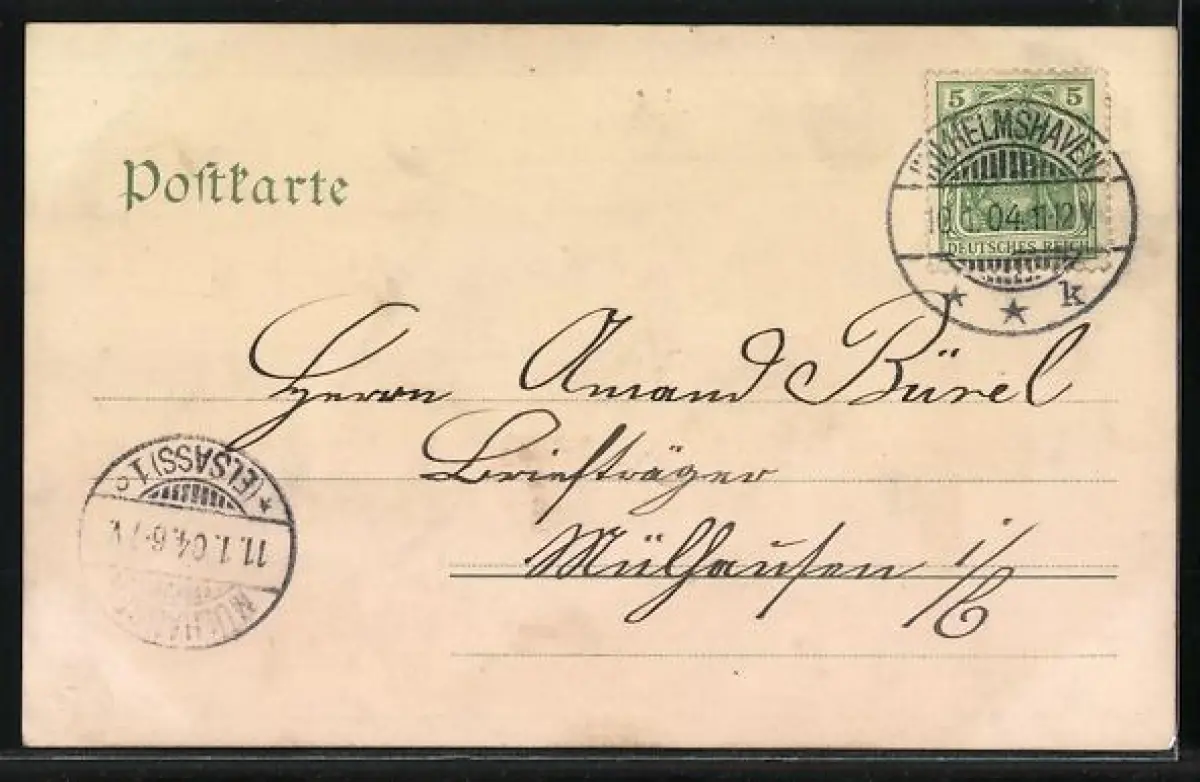 Postkarte
5 5
WILHELMSHAVEN
1.04.11-12V.
DEUTSCHES REICH
* * k
Herrn Amand Bürel
Briefträger
Mülhausen i/E
MÜLHAUSEN
11.1.04.6-7V.
* (ELSASS) 1 c